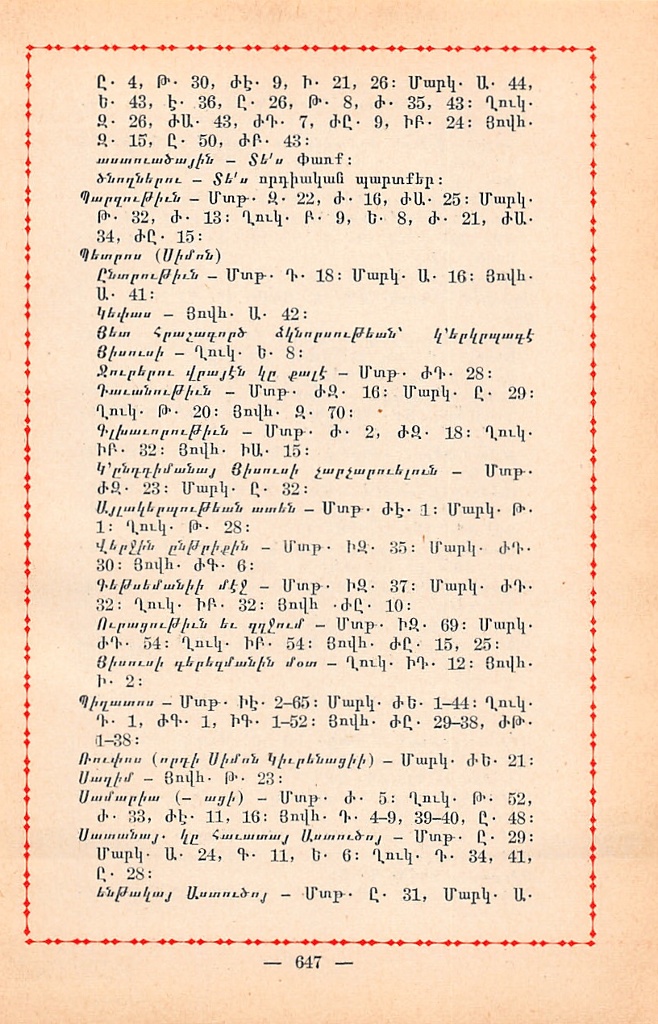 Ը․ 4, Թ․ 30, ԺԷ․ 9, Ի․ 21, 26։ Մարկ․ Ա․ 44,
Ե․ 43, Է․ 36, Ը․ 26, Թ․ 8, Ժ․ 35, 43։ Ղուկ․
Զ․ 26, ԺԱ․ 43, ԺԴ․ 7, ԺԸ․ 9, ԻԲ․ 24։ Յովհ․
Զ․ 15, Ը․ 50, ԺԲ․ 43։
աստուածային – Տե՛ս Փառք։
ծնողներու – Տե՛ս որդիական պարտքեր։
Պարզութիւն – Մտք․ Զ․ 22, Ժ․ 16, ԺԱ․ 25։ Մարկ․
Թ․ 32, Ժ․ 13։ Ղուկ․ Բ․ 9, Ե․ 8, Ժ․ 21, ԺԱ․
34, ԺԸ․ 15։
Պետրոս (Սիմոն)
Ընտրութիւն – Մտք․ Դ․ 18։ Մարկ․ Ա․ 16։ Յովհ․
Ա․ 41։
Կեփաս – Յովհ․ Ա․ 42։
Յետ Հրաշագործ ձկնորսութեան՝ կ՚երկրպագէ
Յիսուսի – Ղուկ․ Ե․ 8։
Ջուրերու վրայէն կը քալէ – Մտք․ ԺԴ․ 28։
Դաւանութիւն – Մտք․ ԺԶ․ 16։ Մարկ․ Ը․ 29։
Ղուկ․ Թ․ 20։ Յովհ․ Զ․ 70։
Գլխաւորութիւն – Մտք․ Ժ․ 2, ԺԶ․ 18։ Ղուկ․
ԻԲ․ 32։ Յովհ․ ԻԱ․ 15։
Կ՚ընդդիմանայ Յիսուսի չարչարուելուն – Մտք․
ԺԶ․ 23։ Մարկ․ Ը․ 32։
Այլակերպութեան ատեն – Մտք․ ԺԷ․ 1։ Մարկ․ Թ․
1։ Ղուկ․ Թ․ 28։
Վերջին ընթրիքին – Մտք․ ԻԶ․ 35։ Մարկ․ ԺԴ․
30։ Յովհ․ ԺԳ․ 6։
Գեթսեմանիի մէջ – Մտք․ ԻԶ․ 37։ Մարկ․ ԺԴ․
32։ Ղուկ․ ԻԲ․ 32։ Յովհ ․ԺԸ․ 10։
Ուրացութիւն եւ զղջում – Մտք․ ԻԶ․ 69։ Մարկ․
ԺԴ․ 54։ Ղուկ․ ԻԲ․ 54։ Յովհ․ ԺԸ․ 15, 25։
Յիսուսի գերեզմանին մօտ – Ղուկ․ ԻԴ․ 12։ Յովհ․
Ի․ 2։
Պիղատոս – Մտք․ ԻԷ․ 2–65։ Մարկ․ ԺԵ․ 1–44։ Ղուկ․
Դ․ 1, ԺԳ․ 1, ԻԳ․ 1–52։ Յովհ․ ԺԸ․ 29–38, ԺԹ․
1–38։
Ռուփոս (որդի Սիմոն Կիւրենացիի) – Մարկ․ ԺԵ․ 21։
Սաղիմ – Յովհ․ Թ․ 23։
Սամարիա (– ացի) – Մտք․ Ժ․ 5։ Ղուկ․ Թ․ 52,
Ժ․ 33, ԺԷ․ 11, 16։ Յովհ․ Դ․ 4–9, 39–40, Ը․ 48։
Սատանայ․ կը Հաւատայ Աստուծոյ – Մտք․ Ը․ 29։
Մարկ․ Ա․ 24, Գ․ 11, Ե․ 6։ Ղուկ․ Դ․ 34, 41,
Ը․ 28։
ենթակայ Աստուծոյ – Մտք․ Ը․ 31, Մարկ․ Ա․
— 647 —